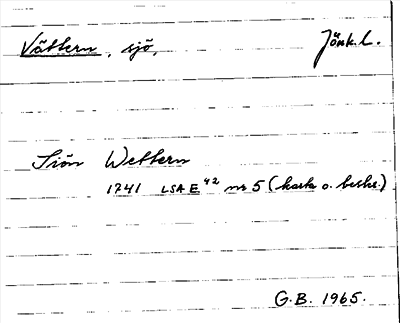 Vättern, sjö, Jönk.l.
Siön Wettern
1741 LSA E 42 nr 5 (karta o. beskr.)
G.B. 1965.